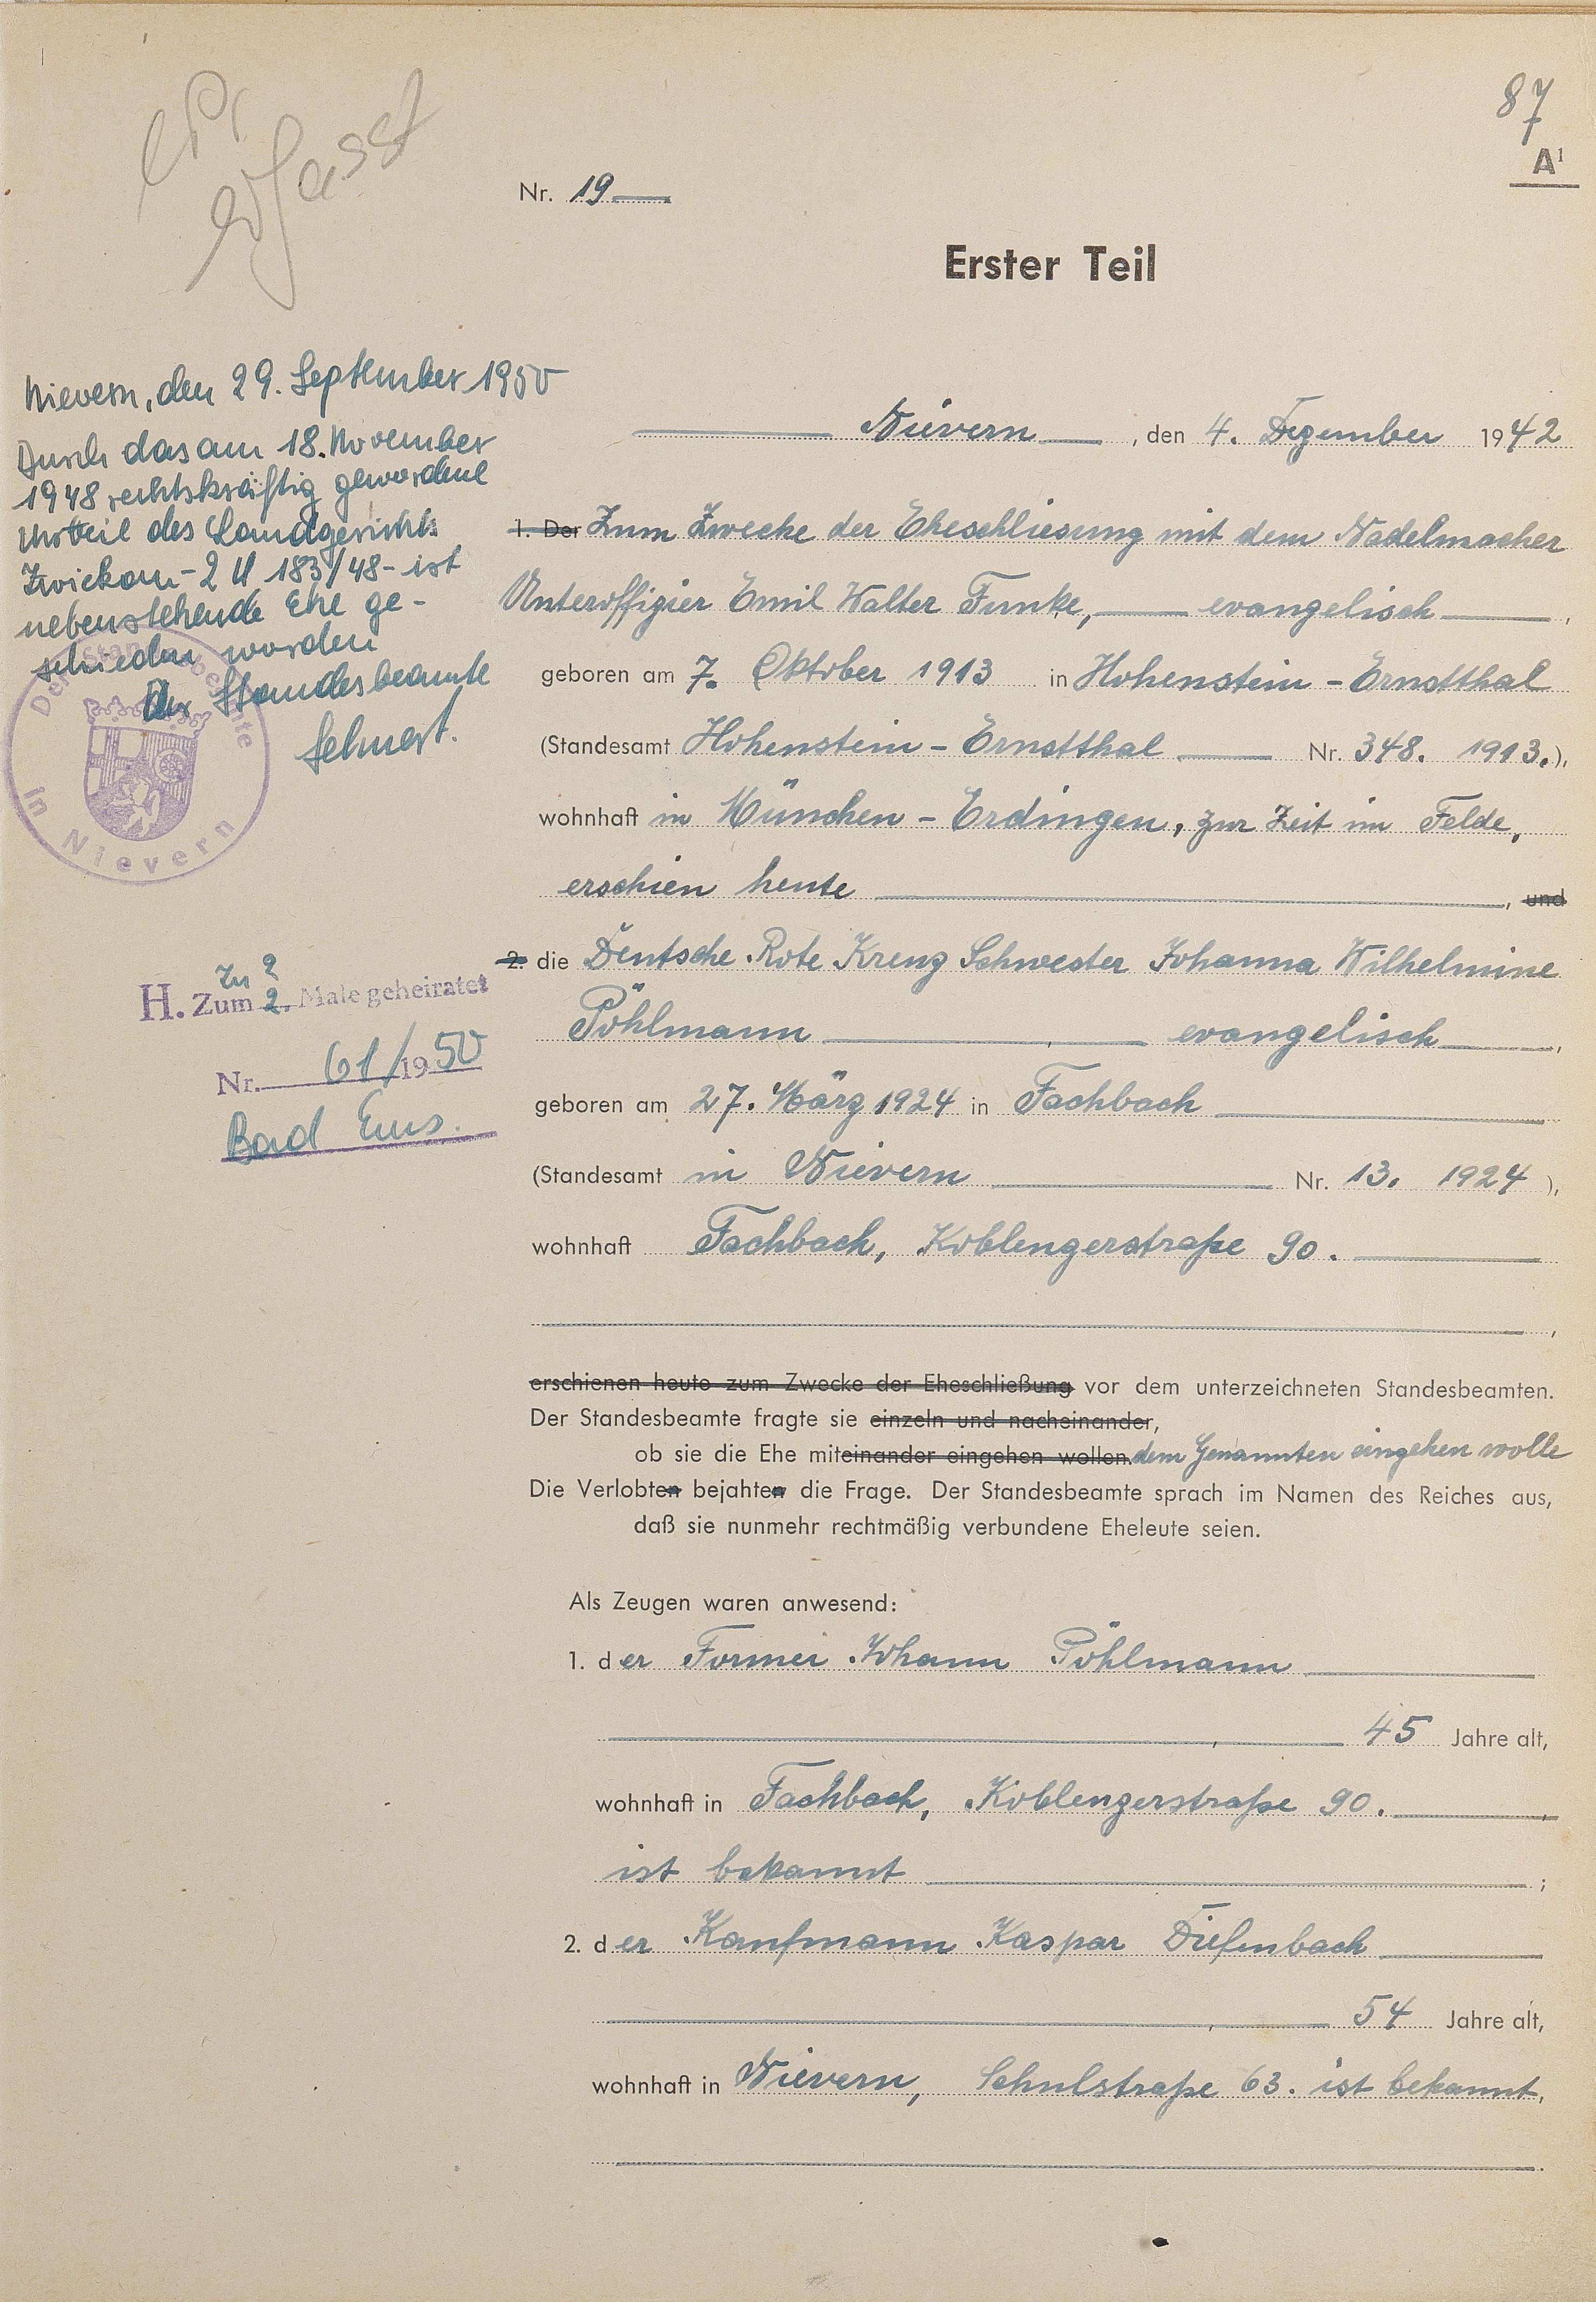 87
A¹
erfasst
Nr. 19
Erster Teil
Nievern, den 29. September 1950
Durch das am 18. November
1948 rechtskräftig gewordene
Urteil des Landgerichts
Zwickau - 2 U 183/48 - ist
nebenstehende Ehe ge-
schieden worden
Der Standesbeamte
Der Standesbeamte
in Nievern
Nievern, den 4. Dezember 1942
1. Der Zum Zwecke der Eheschliesung mit dem Nadelmacher
Unteroffizier Emil Walter Funke, evangelisch,
geboren am 7. Oktober 1913 in Hohenstein - Ernstthal
(Standesamt Hohenstein - Ernstthal Nr. 348. 1913.),
wohnhaft in München - Erdingen, zur Zeit im Felde,
erschien heute, und
2. die Deutsche Rote Kreuz Schwester Johanna Wilhelmine
Pöhlmann evangelisch,
geboren am 27. März 1924 in Fachbach
(Standesamt in Nievern Nr. 13. 1924),
wohnhaft Fachbach, Koblenzerstraße 90.
,
Zu 2
H. Zum 2. Male geheiratet
Nr. 61/1950
Bad Ems.
erschienen heute zum Zwecke der Eheschließung vor dem unterzeichneten Standesbeamten.
Der Standesbeamte fragte sie einzeln und nacheinander,
ob sie die Ehe miteinander eingehen wollen. dem Genannten eingehen wolle
Die Verlobten bejahten die Frage. Der Standesbeamte sprach im Namen des Reiches aus,
daß sie nunmehr rechtmäßig verbundene Eheleute seien.
Als Zeugen waren anwesend:
1. der Former Johann Pöhlmann
, 45 Jahre alt,
wohnhaft in Fachbach, Koblenzerstraße 90.,
ist bekannt ;
2. der Kaufmann Kaspar Diefenbach
, 54 Jahre alt,
wohnhaft in Nievern, Schulstraße 63. ist bekannt,
.